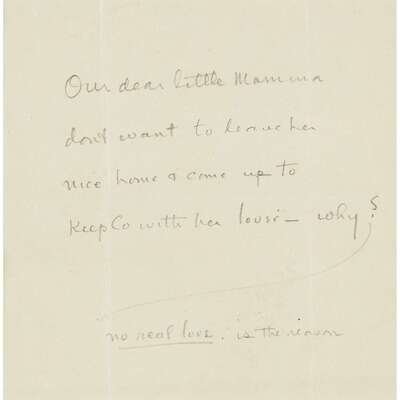 Our dear little Mamma
don't want to leave her
nice home & come up to
Keep Co with her lousé — why?
no real love. is the reason